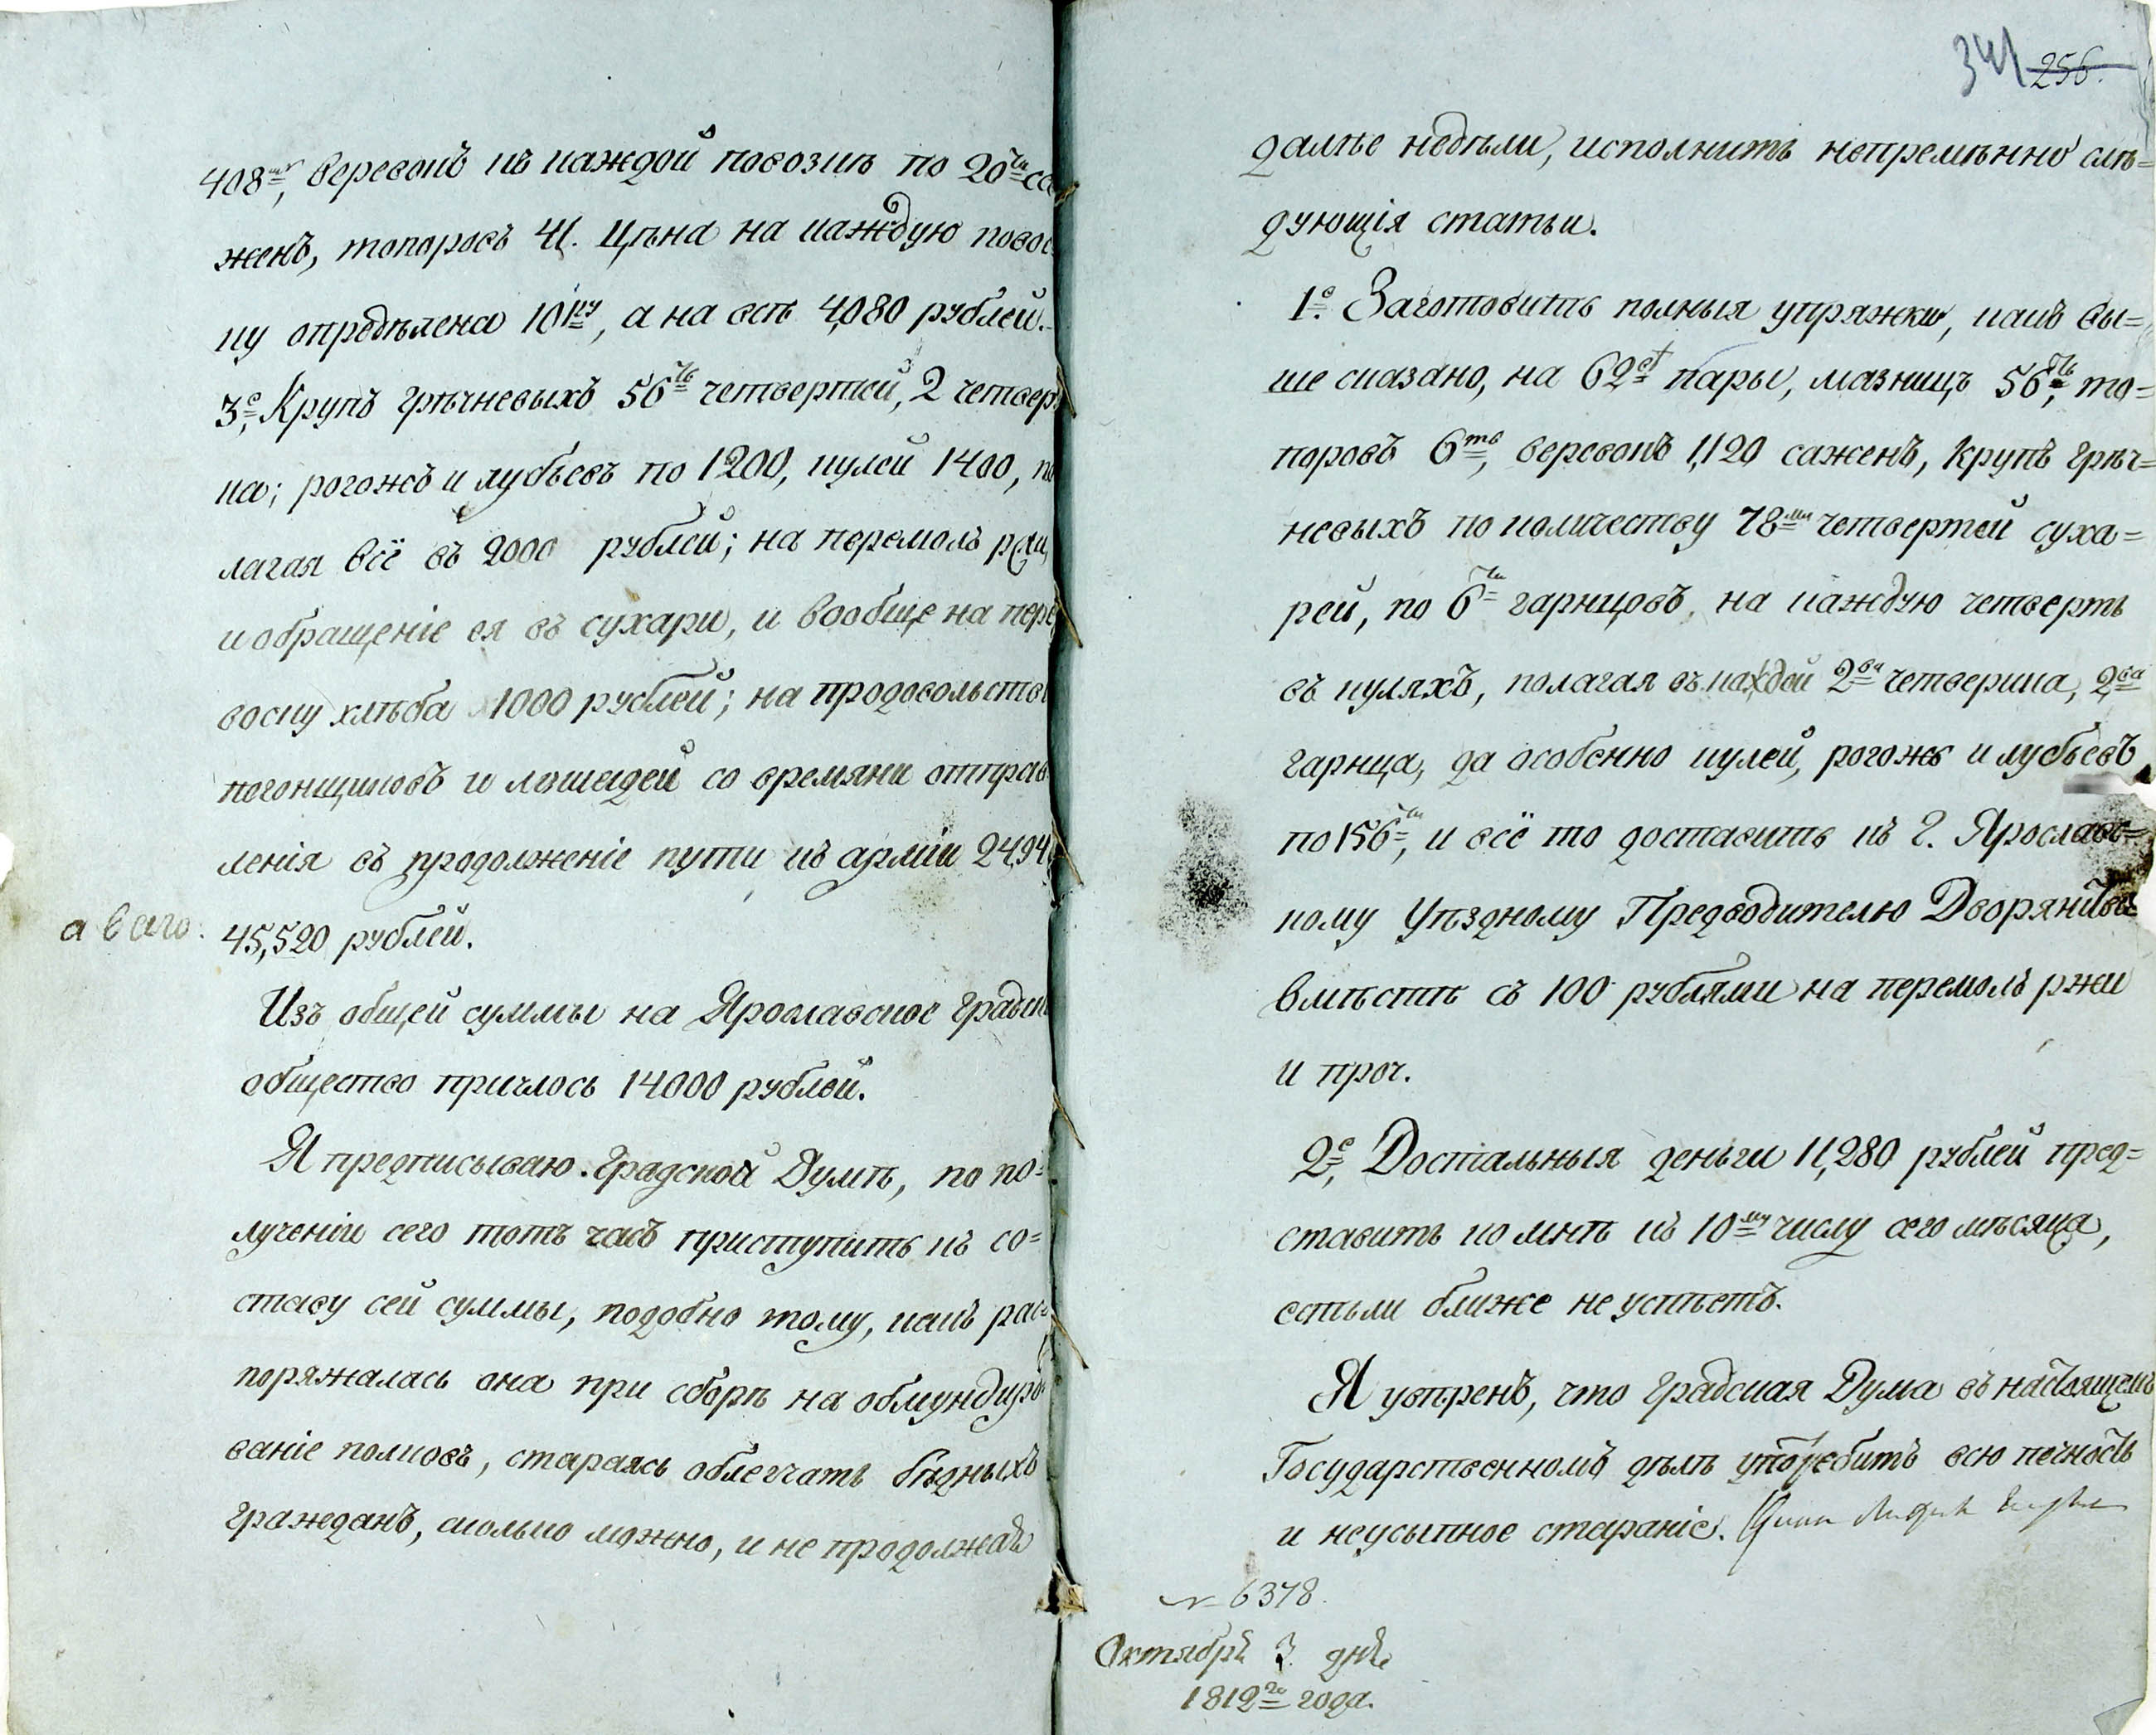 408мъ, веревокъ къ каждой повозкѣ по 20ти са
женъ, топоровъ 41. Цѣна на каждую повоз
ку опредѣлена 10ру, а на всѣ 4,080 рублей.
3е, Крупъ грѣчневыхъ 56ть четвертей, 2 четвер
ка; рогожъ и лубьевъ по 1200, кулей 1400, по
лагая всё въ 2000 рублей; на перемолъ ржи,
и обращеніе ея въ сухари, и вообще на пере
воску хлѣба 1000 рублей; на продовольств
погонщиковъ и лошадей со времяни отправ
ленія въ продолженіе пути къ арміи 24,94
а всего. 45,520 рублей.
Изъ общей суммы на Ярославское градск
общество причлось 14000 рублей.
Я предписываю Градской Думѣ, по по=
лученіи сего тотъ часъ приступить къ со=
ставу сей суммы, подобно тому, какъ рас=
поряжалась она при сборѣ на обмундиро
ваніе полковъ, стараясь облегчать бѣдныхъ
гражданъ, сколько можно, и не продолжая
341 256.
далѣе недѣли, исполнить непремѣнно слѣ=
дующія статьи.
1е. Заготовить полныя упряжки, какъ вы=
ше сказано, на 62 пары, мазницъ 56ть, то=
поровъ 6ть, веревокъ 1,120 саженъ, Крупъ грѣч=
невыхъ по количеству 78ми четвертей суха=
рей, по 6ти гарнцовъ на каждую четверть
въ куляхъ, полагая въ каждой 2ва четверика, 2ва
гарнца, да особенно кулей, рогожъ и лубьевъ
по 156ти, и всё то доставить къ Г. Ярославс=
кому Уѣздному Предводителю Дворянства
вмѣстѣ съ 100 рублями на перемолъ ржи
и проч.
2е, Достальныя деньги 11,280 рублей пред=
ставить ко мнѣ къ 10му числу сего мѣсяца,
естьли ближе не успѣетъ.
Я увѣренъ, что Градская Дума въ настоящемъ
Государственномъ дѣлѣ употребитъ всю печность
и неусыпное стараніе.
№ 6378.
Октября 3. дня
1812го года.